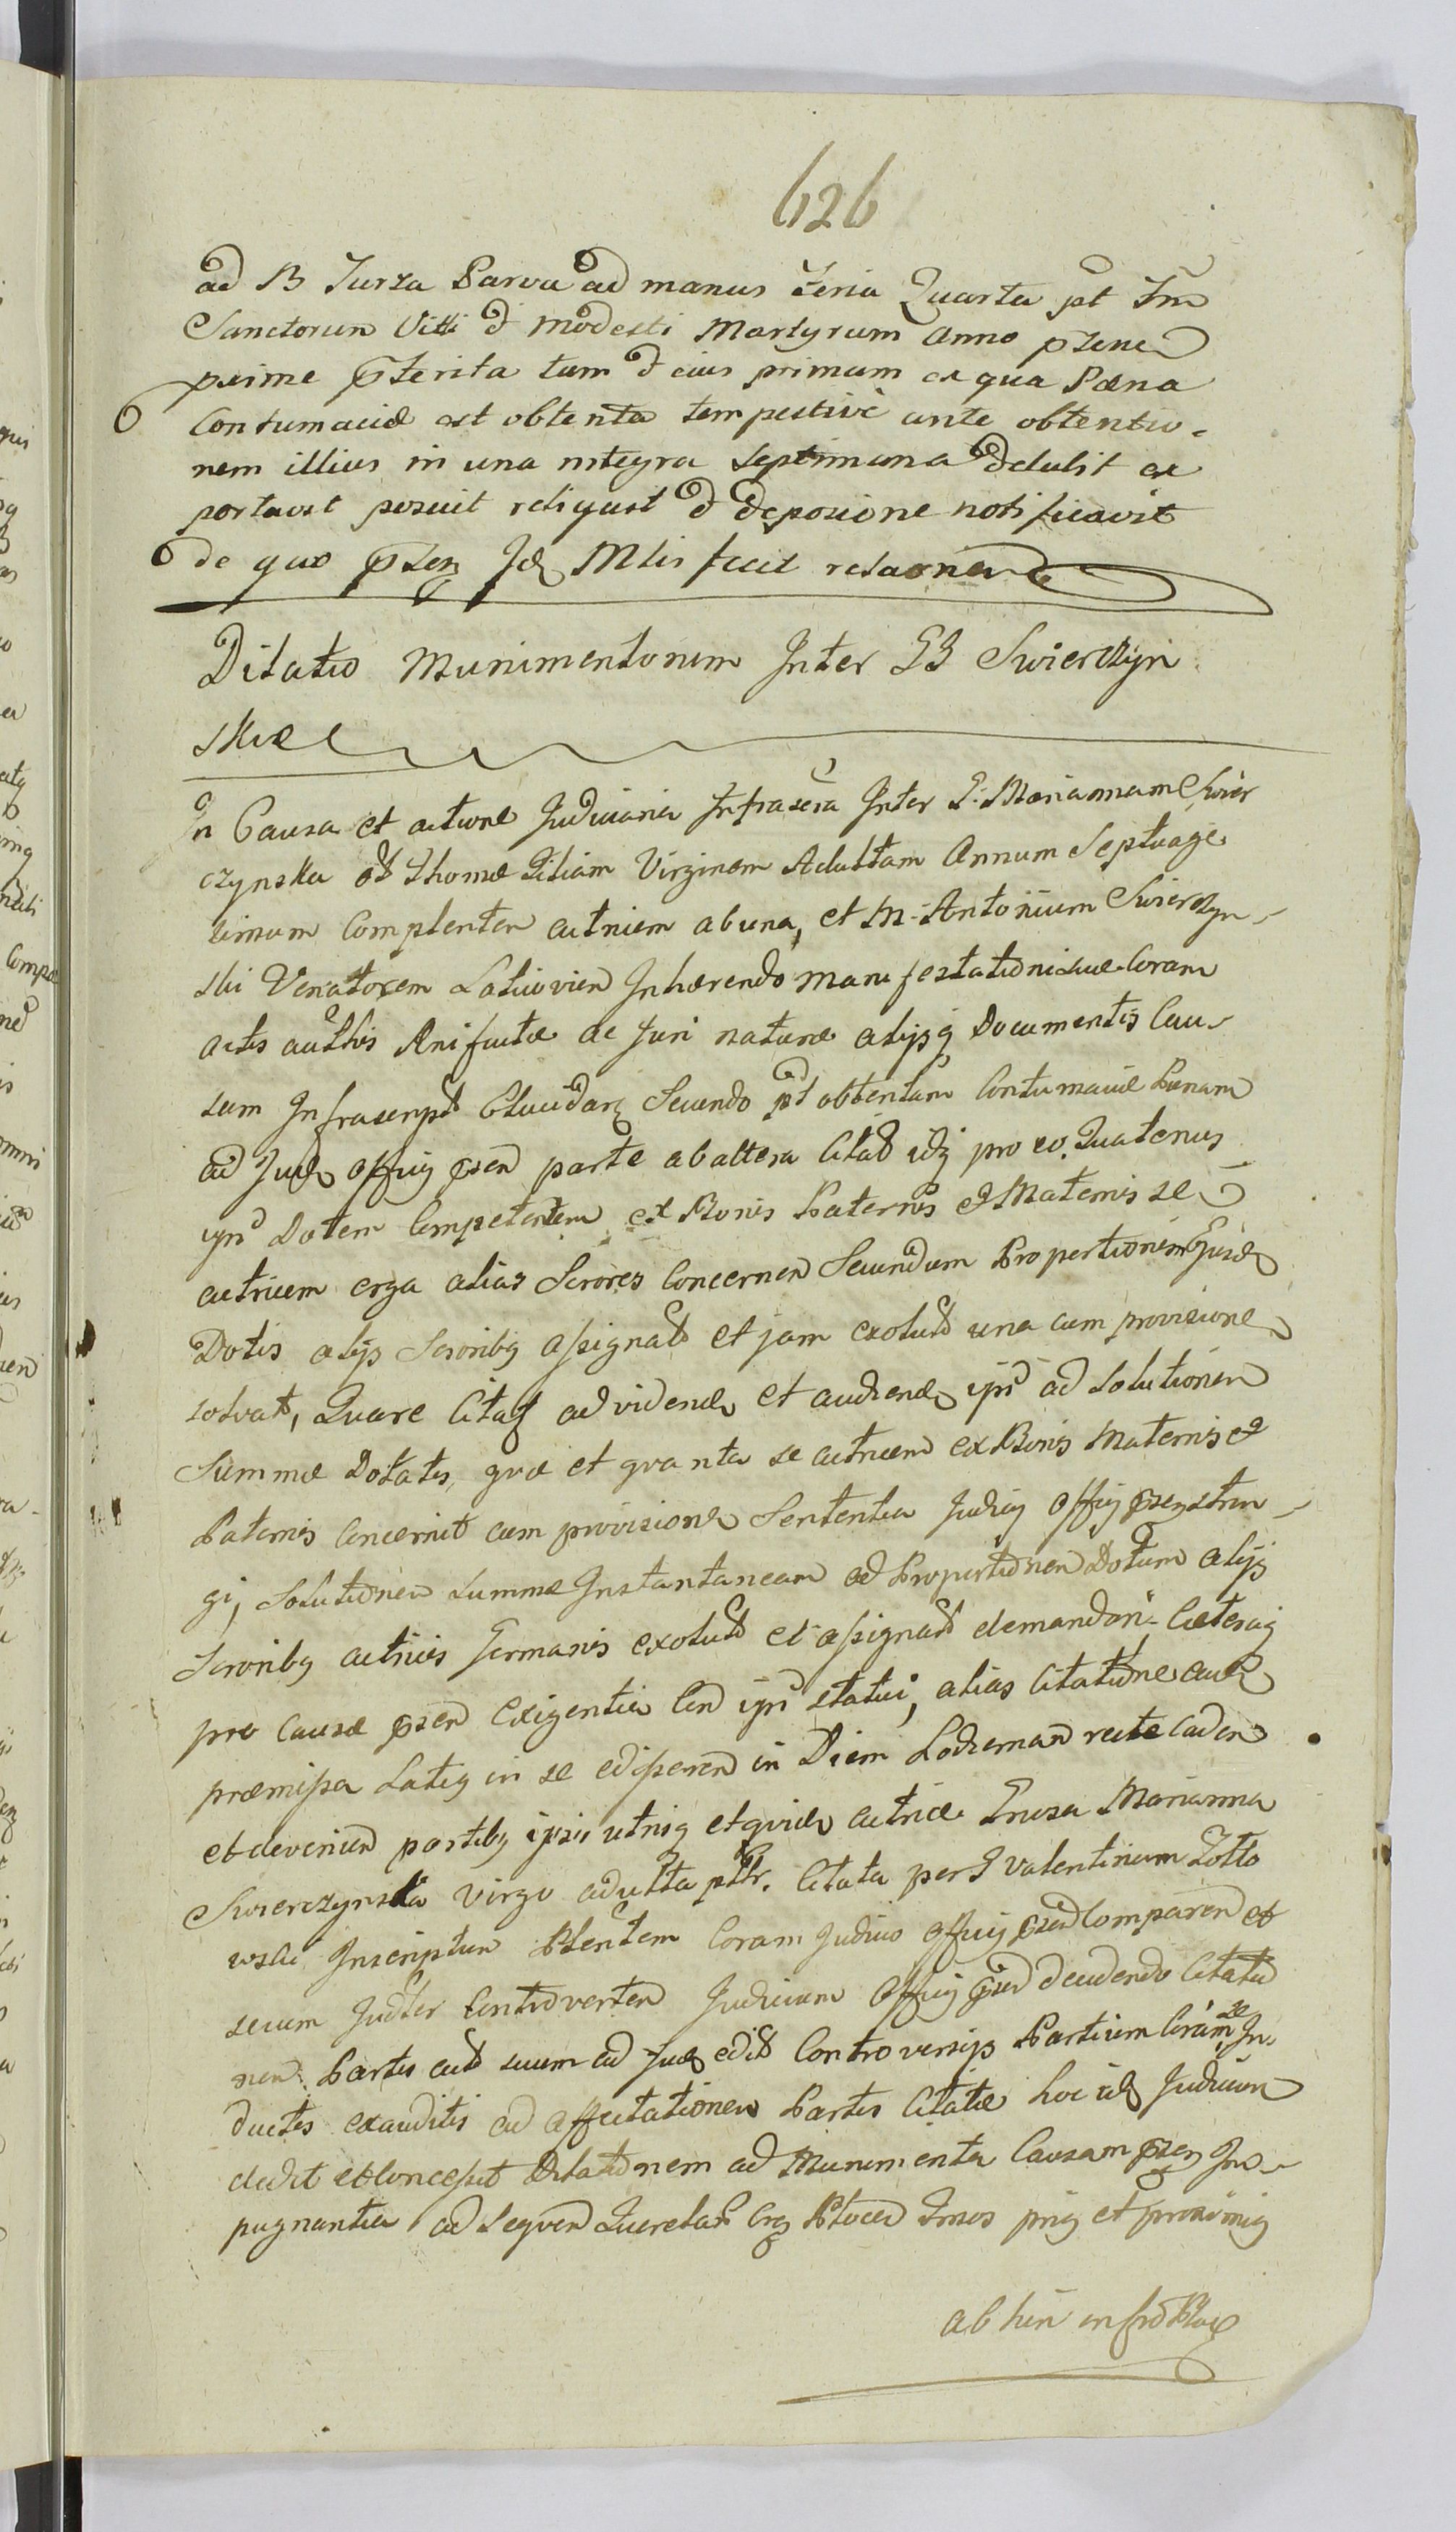 626
ad B Turza Parva ad manus Feria Quarta pt Fm
Sanctorum Viti & Modesti Martyrum Anno
prime terita tum & eius primum ex qua Pæna
Contumaciæ est obtenta tempestive ante obtentio-
nem illius in una integra septimana detulit ex
portavit posuit reliquit & de posicione notificavit
de quo Mlis fecit relaonem
Dilatio Munimentorum Inter GG Swierczyn
skie
In Causa et actione Judiciaria Infrascra Inter G. Mariannam Swier
czynska Thomæ Filiam Virginem Adultam Annum Septuage
simum Complenten actricem ab una, et M. Antonium Swierczyn-
ski Venatorem Latiovien Inhærendo manifestationi suæ Coram
actis authis factæ ac Juri naturæ alijsq Documentis Cau-
sam Infrascript Elucidan Secundo pt obtentam Contumaciæ Pænam
ad Jud offij psen parte ab altera Citat idq pro eo. Quatenus
ipse Dotem Competentem ex Bonis Paternis & Maternis se
actricem erga alias Sorores Concernen Secundum Proportionem Ejusd
Dotis alijs Sororibq assignat et jam exolut una cum provisione
solvat, Quare Citat ad vidend et audiend ipse ad solutionem
Summæ Dotalis, quæ et quanta se actricem ex Bonis Maternis &
Paternis Concernit cum provisione Sententia Judicij offij psen strin-
gi, Solutionem summæ Instantaneam ad Proportionem Dotum alijs
Sororibq actricis Germanis exolut et assignat demandari Cæteraq
pro causæ psen Exigentia Con ipse statui, alias Citatione
præmissa Latiq in se edisseren in Diem hodiernam recte caden
et devenien partibq ipsis utrisq et quide actrice Grosa Marianna
Swierczynska Virgo adulta Citata per G Valentinum Zotto
wski Inscriptum Plentem Coram Judicio offij psen Comparen et
secum Judter Controverten Judicium Offij psen decidendo Citatio
nem Partis act suum ad Jud edit Controversijs Partium Coram se In
ductis exauditis ad affectationem Partis Citatæ hoc id Judicium
dedit et concessit Dilationem ad Munimenta Causam psen Im-
pugnantia ad Sequen Querelas Crg Plocen Grosos priq et proximiq
ab hin in fro